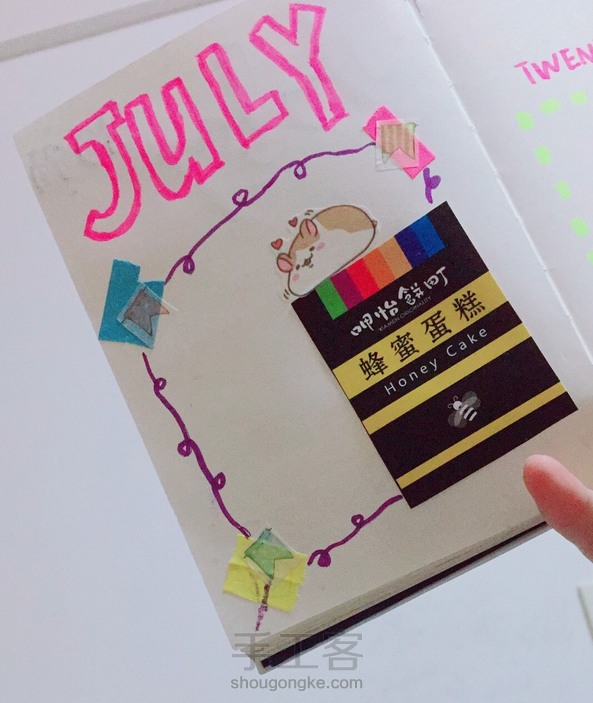 JULY
TWEN
呷怡餅町
XIAMEN ORIGINALITY
蜂蜜蛋糕
Honey Cake
手工客
shougongke.com